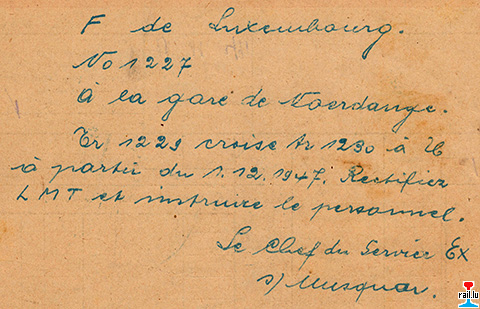 F de Luxembourg.
No 1227
à la gare de Noerdange.
Tr 1229 croise tr 1230 à
à partir du 1.12.1947. Rectifier
L M T et instruire le personnel.
Le Chef du Service Ex
s)
rail.lu